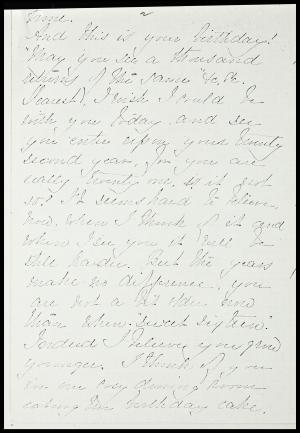 2
time.
And this is your birthday!
"May you see a thousand
returns of the same" &c, &c.
Dearest, I wish I could be
with you today, and see
you enter upon your twenty
second year, for you are
really twenty one, is it not
so? It seems hard to believe
now, when I think of it and
when I see you it will be
still harder. But the years
make no difference, you
are not a bit older now
than when "sweet sixteen".
Indeed I believe you grow
younger. I think of you
in our cosy dining room
eating the birthday cake.